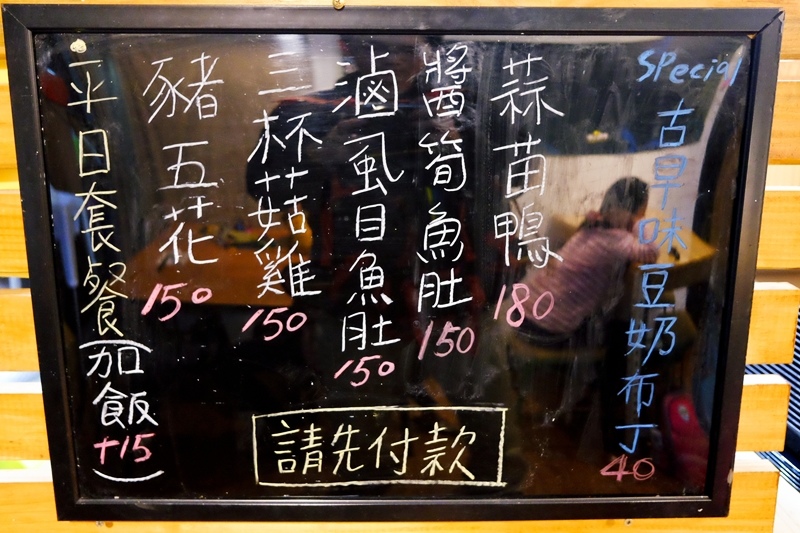 Special
古早味豆奶布丁 40
蒜苗鴨 180
醬筍魚肚 150
滷虱目魚肚 150
三杯菇雞 150
豬五花 150
平日套餐(加飯+15)
請先付款